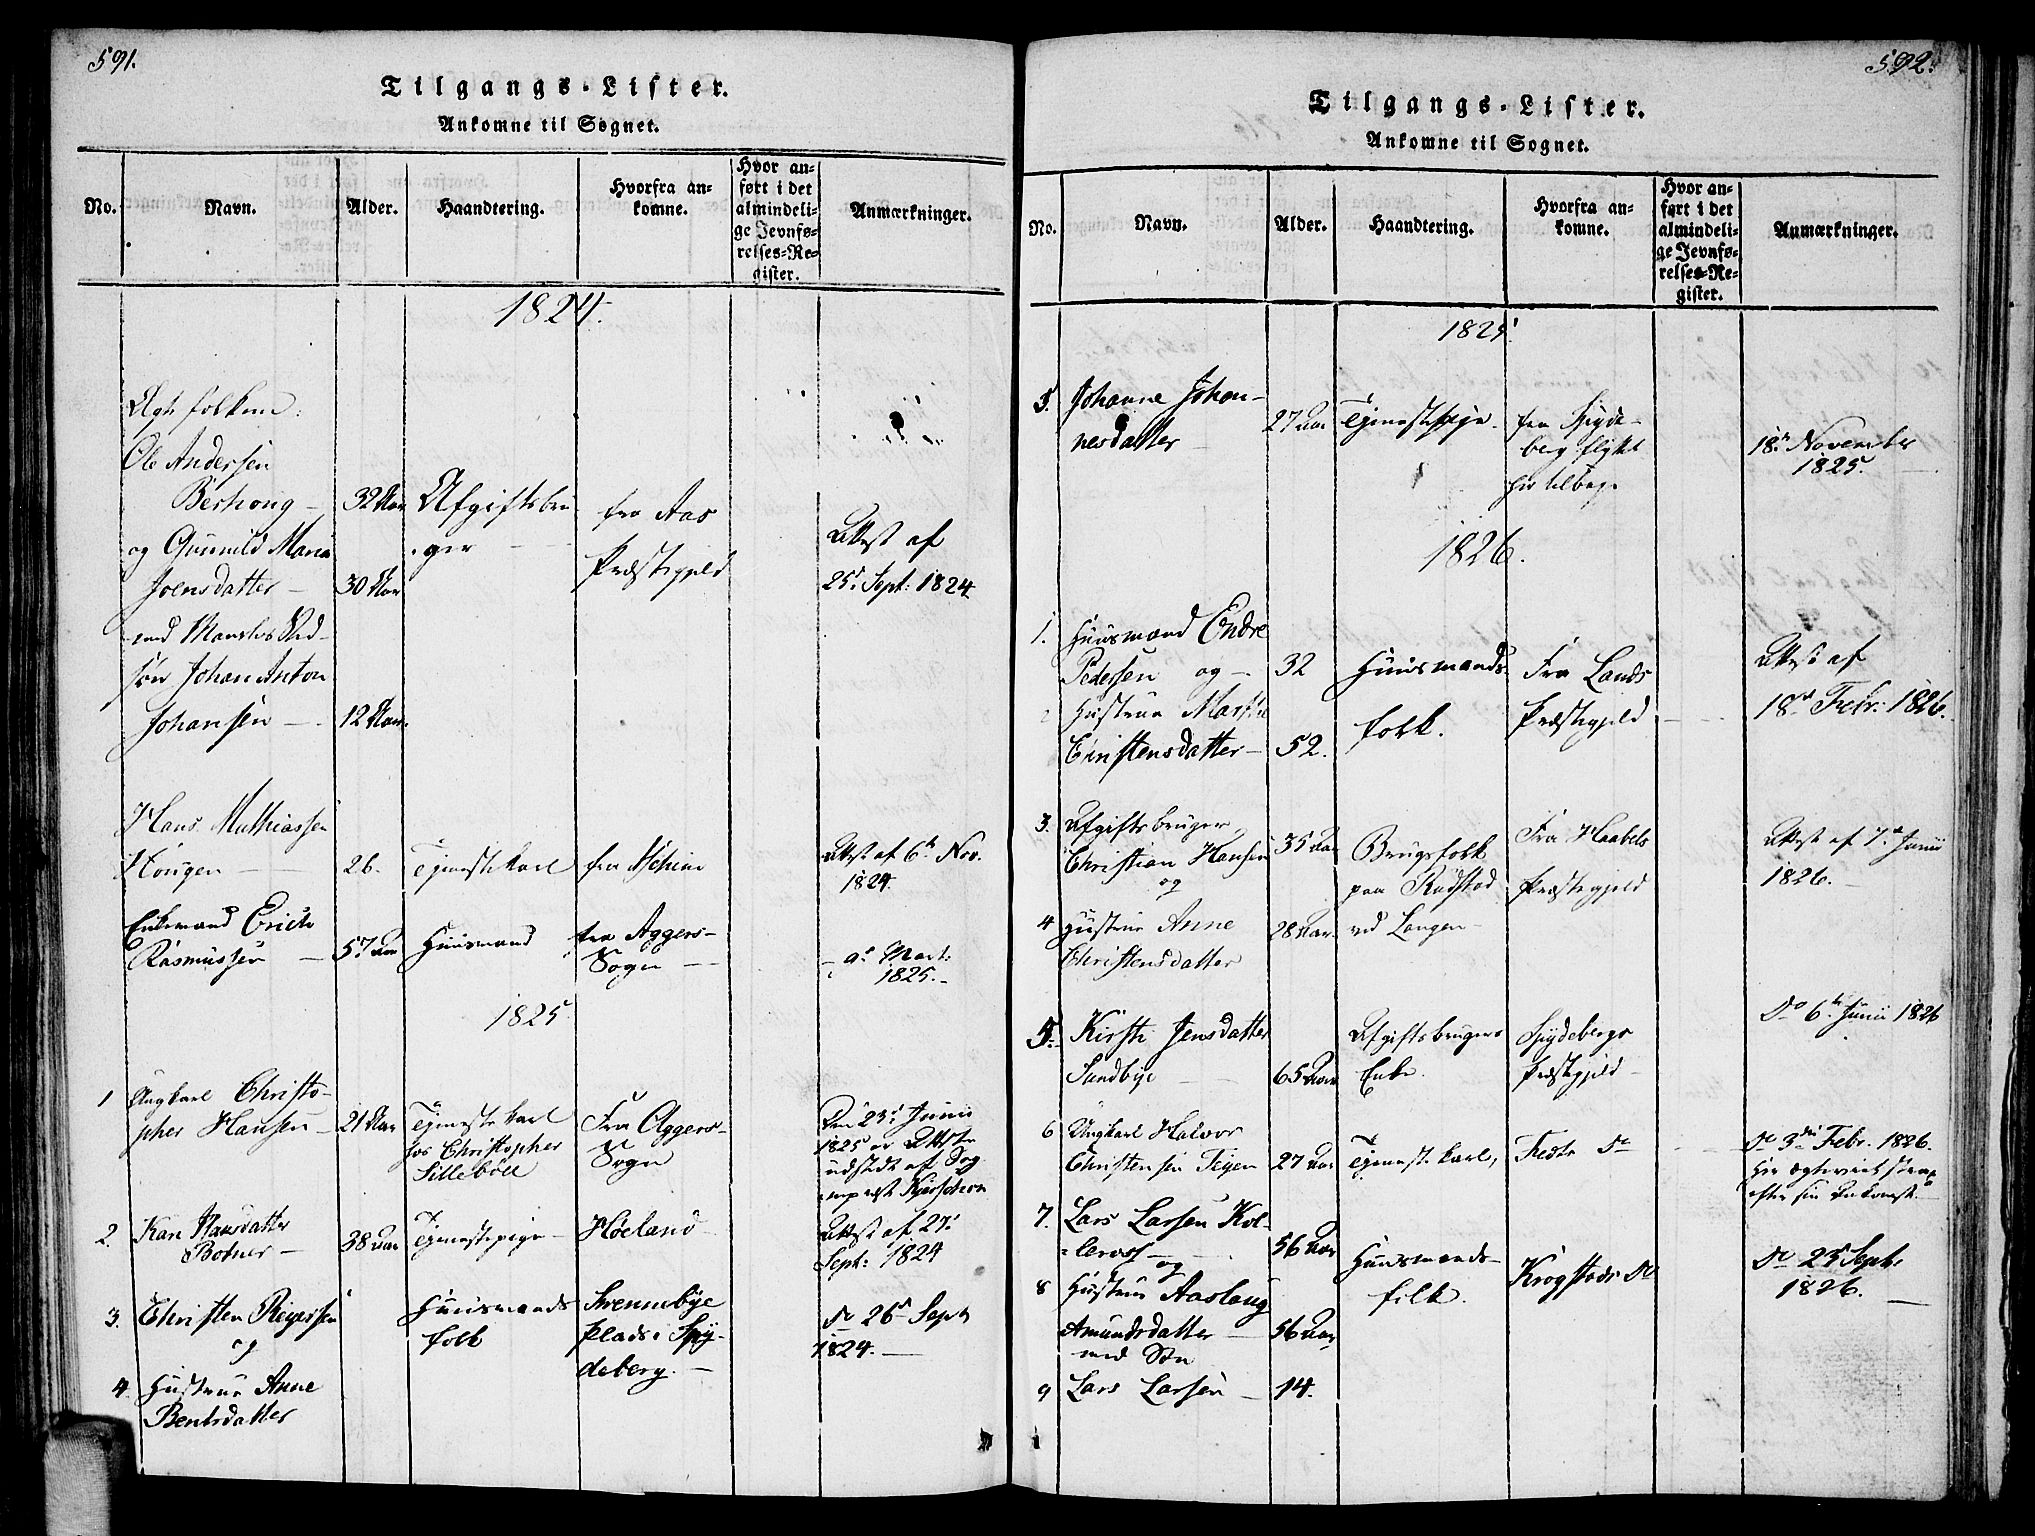 591.
Tilgangs-Lister.
Ankomne til Sognet.
No.
Navn.
Alder.
Haandtering.
Hvorfra an-
komne.
Hvor an-
ført i det
almindeli-
ge Jevnfø-
relses-Re-
gister.
Anmærkninger.
1824.
Ægtefolkene:
Ole Andersen
Berhoug —
32 Aar
Afgiftsbru
ger —
fra Aas
Præstegjeld
Attest af
25d Sept: 1824
og Gunnild Maria
Joensdatter —
30 Aar
med Mandens
søn Johan Anton
Johansen —
12 Aar
Hans Mathiassen
Hougen —
26.
Tjenestekarl
fra
Attest af 6te Nov.
1824.
Enkemand Erich
Rasmussen —
57 Aar
Huusmand
fra Aggers-
Sogn —
9d Mart:
1825.
1825
1
Ungkarl Christo-
pher Hansen —
21 Aar
Tjenestekarl
hos Christopher
Sillebøll
Fra Aggers-
Sogn
Den 23d Junii
1825 er Attesten
udstedt af Sog-
nepræst Kjerschow
2.
Kari Hansdatter
Botner —
38 Aar
Tjenestepige —
Høeland
Attest af 27d
Sept: 1824
3.
Christen Reyerssen
og
Huusmands
folk
Svennebye
plads i Spy-
deberg. —
do 26d Sept
1824. —
4.
Hustrue Anne
Bentsdatter
592.
Tilgangs-Lister.
Ankomne til Sognet.
No.
Navn.
Alder.
Haandtering.
Hvorfra an-
komne.
Hvor an-
ført i det
almindeli-
ge Jevnfø-
relses-Re-
gister.
Anmærkninger.
1825.
5.
Johanne Johan-
nesdatter —
27 Aar
Tjenestepige.
fra Spyde-
berg flyttet
her tilbage
18de November
1825.
1826.
1.
Huusmand Endre
Pedersen og —
32
Huusmands-
folk.
Fra Lands
Præstegjeld
Attest af
18de Febr: 1826.
2
Hustrue Marthe
Christensdatter —
52.
3.
Afgiftsbruger
Christian Hansen
og
35 Aar
Brugsfolk
paa Rudstad
ved Langen —
Fra Haabels
Præstegjeld
Attest af 7de Junii
1826. —
4
Hustrue Anne
Christensdatter
28 Aar.
5.
Kirsti Jensdatter
Sandbye —
65 Aar
Afgiftsbrugers
Enke.
Spydebergs
Præstegjeld —
do 6te Junii 1826
6
Ungkarl Halvor
Christensen Teyen
27 Aar
Tjenestekarl,
Fedts do
do 3die Febr. 1826.
her ægteviet strax
efter sin Ankomst.
7.
Lars Larsen Kol-
leraas —
og
56 Aar
Huusmands-
folk.
Krogstads do
do 25 Sept.
1826. —
8
Hustrue Aaslaug
Amundsdatter —
med Søn
56 Aar
9
Lars Larsen —
14.